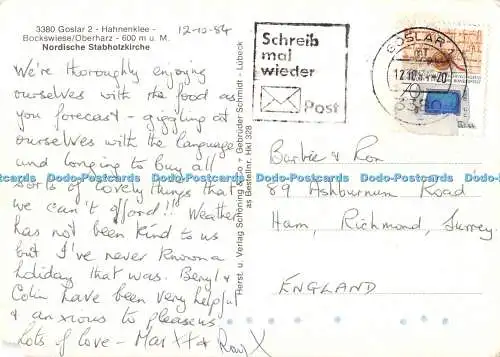 3380 Goslar 2 - Hahnenklee -
Bockswiese/Oberharz - 600 m u. M.
Nordische Stabholzkirche
12-10-84
We're thoroughly enjoying
ourselves with the food as
you forecast - giggling at
ourselves with the language
and longing to buy all
sorts of lovely things that
we can't afford!! Weather
has not been kind to us
but I've never known a
holiday that was. Beryl &
Colin have been very helpful
& anxious to please us
Lots of love - Mar XX &
Herst. u. Verlag Schöning & Co. + Gebrüder Schmidt - Lübeck
as Bestellnr. Hkl 328
Schreib
mal
wieder
Post
GOSLAR 1
12.10.84-20
3380
Barbie & Ron
89 Ashburnum Road
Ham, Richmond, Surrey.
ENGLAND
Dodo-Postcards Dodo-Postcards Dodo-Postcards Dodo-Postcards